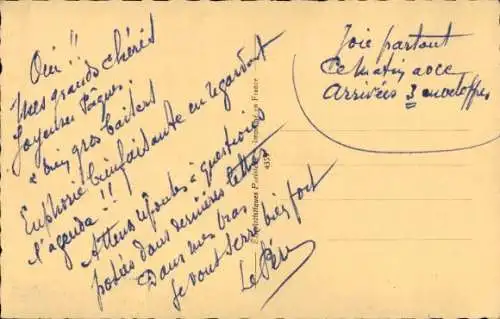 Oui !!
Mes grands chéris
Joyeuses Pâques.
& bien gros baisers
Euphorie bienfaisante en regardant
l'agenda !!
Attends réponses à questions
posées dans dernières lettres
Dans mes bras
Je vous serre bien fort
Le Père
Joie partout
Ce matin avec
Arrivées 3 enveloppes